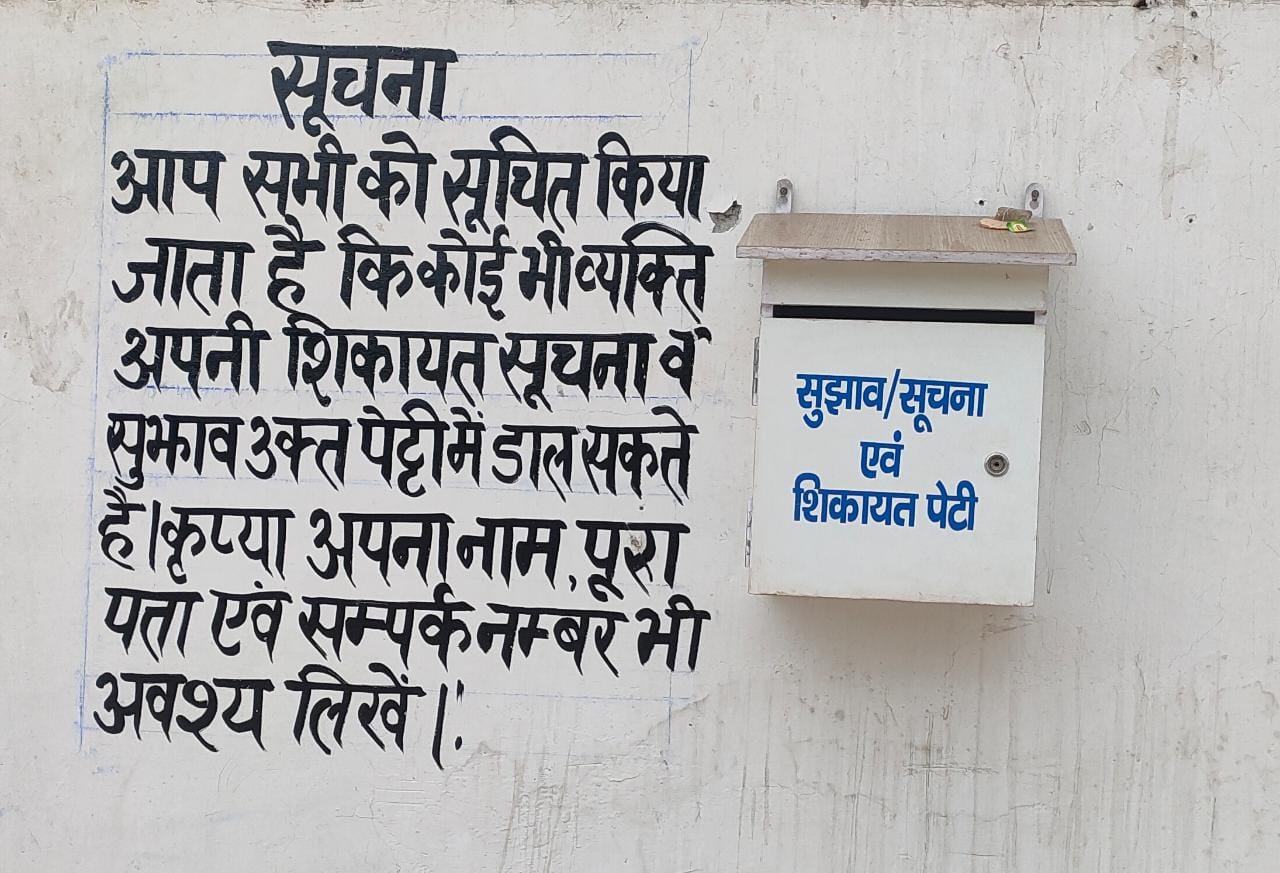 सूचना
आप सभी को सूचित किया
जाता है कि कोई भी व्यक्ति
अपनी शिकायत सूचना व
सुझाव उक्त पेट्टी में डाल सकते
है। कृप्या अपना नाम, पूरा
पता एवं सम्पर्क नम्बर भी
अवश्य लिखें।
सुझाव/सूचना
एवं
शिकायत पेटी